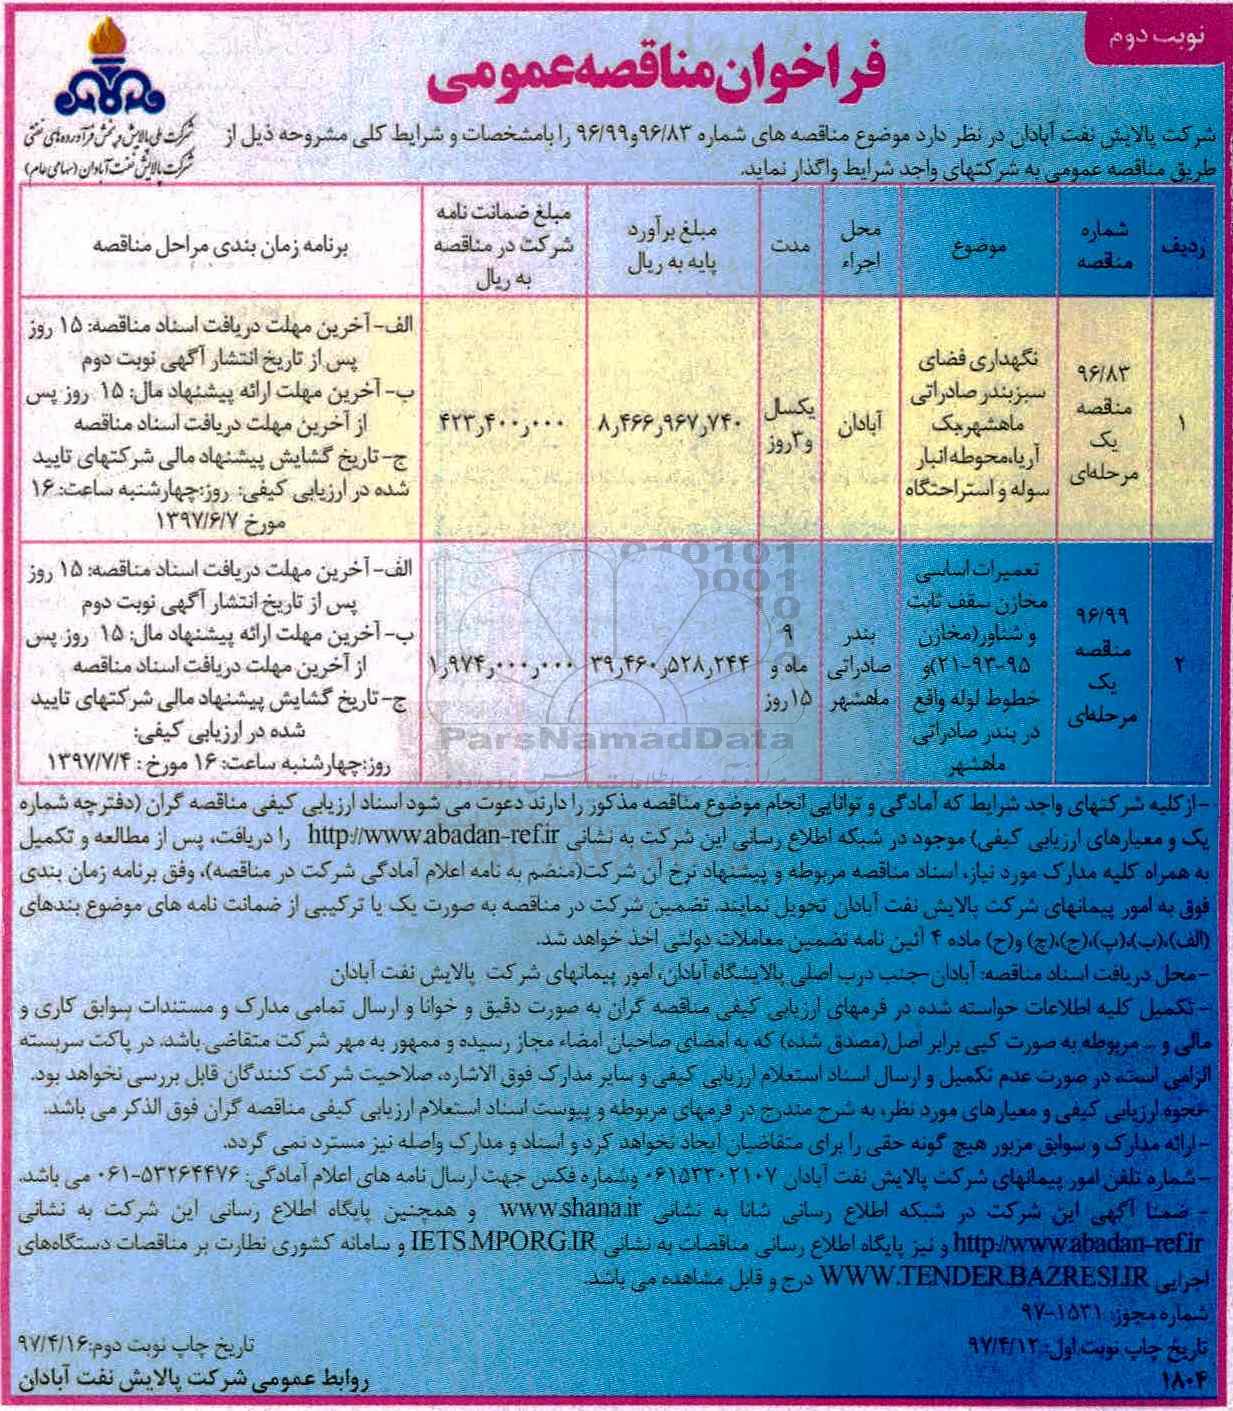 نوبت دوم
فراخوان مناقصه عمومی
شرکت ملی پالایش و پخش فرآورده‌های نفتی
شرکت پالایش نفت آبادان (سهامی عام)
شرکت پالایش نفت آبادان در نظر دارد موضوع مناقصه های شماره ۹۶/۸۳و۹۶/۹۹ را بامشخصات و شرایط کلی مشروحه ذیل از
طریق مناقصه عمومی به شرکتهای واجد شرایط واگذار نماید.
ردیف
شماره
مناقصه
موضوع
محل
اجراء
مدت
مبلغ برآورد
پایه به ریال
مبلغ ضمانت نامه
شرکت در مناقصه
به ریال
برنامه زمان بندی مراحل مناقصه
۱
۹۶/۸۳
مناقصه
یک
مرحله‌ای
نگهداری فضای
سبزبندر صادراتی
ماهشهر،یک
آریا،محوطه انبار
سوله و استراحتگاه
آبادان
یکسال
و۳روز
۸٫۴۶۶٫۹۶۷٫۷۴۰
۴۲۳٫۴۰۰٫۰۰۰
الف- آخرین مهلت دریافت اسناد مناقصه: ۱۵ روز
پس از تاریخ انتشار آگهی نوبت دوم
ب- آخرین مهلت ارائه پیشنهاد مال: ۱۵ روز پس
از آخرین مهلت دریافت اسناد مناقصه
ج- تاریخ گشایش پیشنهاد مالی شرکتهای تایید
شده در ارزیابی کیفی: روز:چهارشنبه ساعت: ۱۶
مورخ ۱۳۹۷/۶/۷
۲
۹۶/۹۹
مناقصه
یک
مرحله‌ای
تعمیرات اساسی
مخازن سقف ثابت
و شناور(مخازن
۹۵-۹۳-۲۱)و
خطوط لوله واقع
در بندر صادراتی
ماهشهر
بندر
صادراتی
ماهشهر
۹
ماه و
۱۵روز
۳۹٫۴۶۰٫۵۲۸٫۲۴۴
۱٫۹۷۴٫۰۰۰٫۰۰۰
الف- آخرین مهلت دریافت اسناد مناقصه: ۱۵ روز
پس از تاریخ انتشار آگهی نوبت دوم
ب- آخرین مهلت ارائه پیشنهاد مال: ۱۵ روز پس
از آخرین مهلت دریافت اسناد مناقصه
ج- تاریخ گشایش پیشنهاد مالی شرکتهای تایید
شده در ارزیابی کیفی:
روز:چهارشنبه ساعت: ۱۶ مورخ : ۱۳۹۷/۷/۴
ParsNamadData
-ازکلیه شرکتهای واجد شرایط که آمادگی و توانایی انجام موضوع مناقصه مذکور را دارند دعوت می شود اسناد ارزیابی کیفی مناقصه گران (دفترچه شماره
یک و معیارهای ارزیابی کیفی) موجود در شبکه اطلاع رسانی این شرکت به نشانی http://www.abadan-ref.ir را دریافت، پس از مطالعه و تکمیل
به همراه کلیه مدارک مورد نیاز، اسناد مناقصه مربوطه و پیشنهاد نرخ آن شرکت(منضم به نامه اعلام آمادگی شرکت در مناقصه)، وفق برنامه زمان بندی
فوق به امور پیمانهای شرکت پالایش نفت آبادان تحویل نمایند. تضمین شرکت در مناقصه به صورت یک یا ترکیبی از ضمانت نامه های موضوع بندهای
(الف)،(ب)،(پ)،(ج)،(چ) و(ح) ماده ۴ آئین نامه تضمین معاملات دولتی اخذ خواهد شد.
-محل دریافت اسناد مناقصه: آبادان-جنب درب اصلی پالایشگاه آبادان، امور پیمانهای شرکت پالایش نفت آبادان
- تکمیل کلیه اطلاعات خواسته شده در فرمهای ارزیابی کیفی مناقصه گران به صورت دقیق و خوانا و ارسال تمامی مدارک و مستندات سوابق کاری و
مالی و ... مربوطه به صورت کپی برابر اصل(مصدق شده) که به امضای صاحبان امضاء مجاز رسیده و ممهور به مهر شرکت متقاضی باشد، در پاکت سربسته
الزامی است، در صورت عدم تکمیل و ارسال اسناد استعلام ارزیابی کیفی و سایر مدارک فوق الاشاره، صلاحیت شرکت کنندگان قابل بررسی نخواهد بود.
-نحوه ارزیابی کیفی و معیارهای مورد نظر، به شرح مندرج در فرمهای مربوطه و پیوست اسناد استعلام ارزیابی کیفی مناقصه گران فوق الذکر می باشد.
-ارائه مدارک و سوابق مزبور هیچ گونه حقی را برای متقاضیان ایجاد نخواهد کرد و اسناد و مدارک واصله نیز مسترد نمی گردد.
-شماره تلفن امور پیمانهای شرکت پالایش نفت آبادان ۰۶۱۵۳۳۰۲۱۰۷ وشماره فکس جهت ارسال نامه های اعلام آمادگی: ۵۳۲۶۴۴۷۶-۰۶۱ می باشد.
- ضمنا آگهی این شرکت در شبکه اطلاع رسانی شانا به نشانی www.shana.ir و همچنین پایگاه اطلاع رسانی این شرکت به نشانی
http://www.abadan-ref.ir و نیز پایگاه اطلاع رسانی مناقصات به نشانی IETS.MPORG.IR و سامانه کشوری نظارت بر مناقصات دستگاه‌های
اجرایی WWW.TENDER.BAZRESI.IR درج و قابل مشاهده می باشد.
شماره مجوز: ۱۵۳۱-۹۷
تاریخ چاپ نوبت اول: ۹۷/۴/۱۲
تاریخ چاپ نوبت دوم:۹۷/۴/۱۶
۱۸۰۴
روابط عمومی شرکت پالایش نفت آبادان